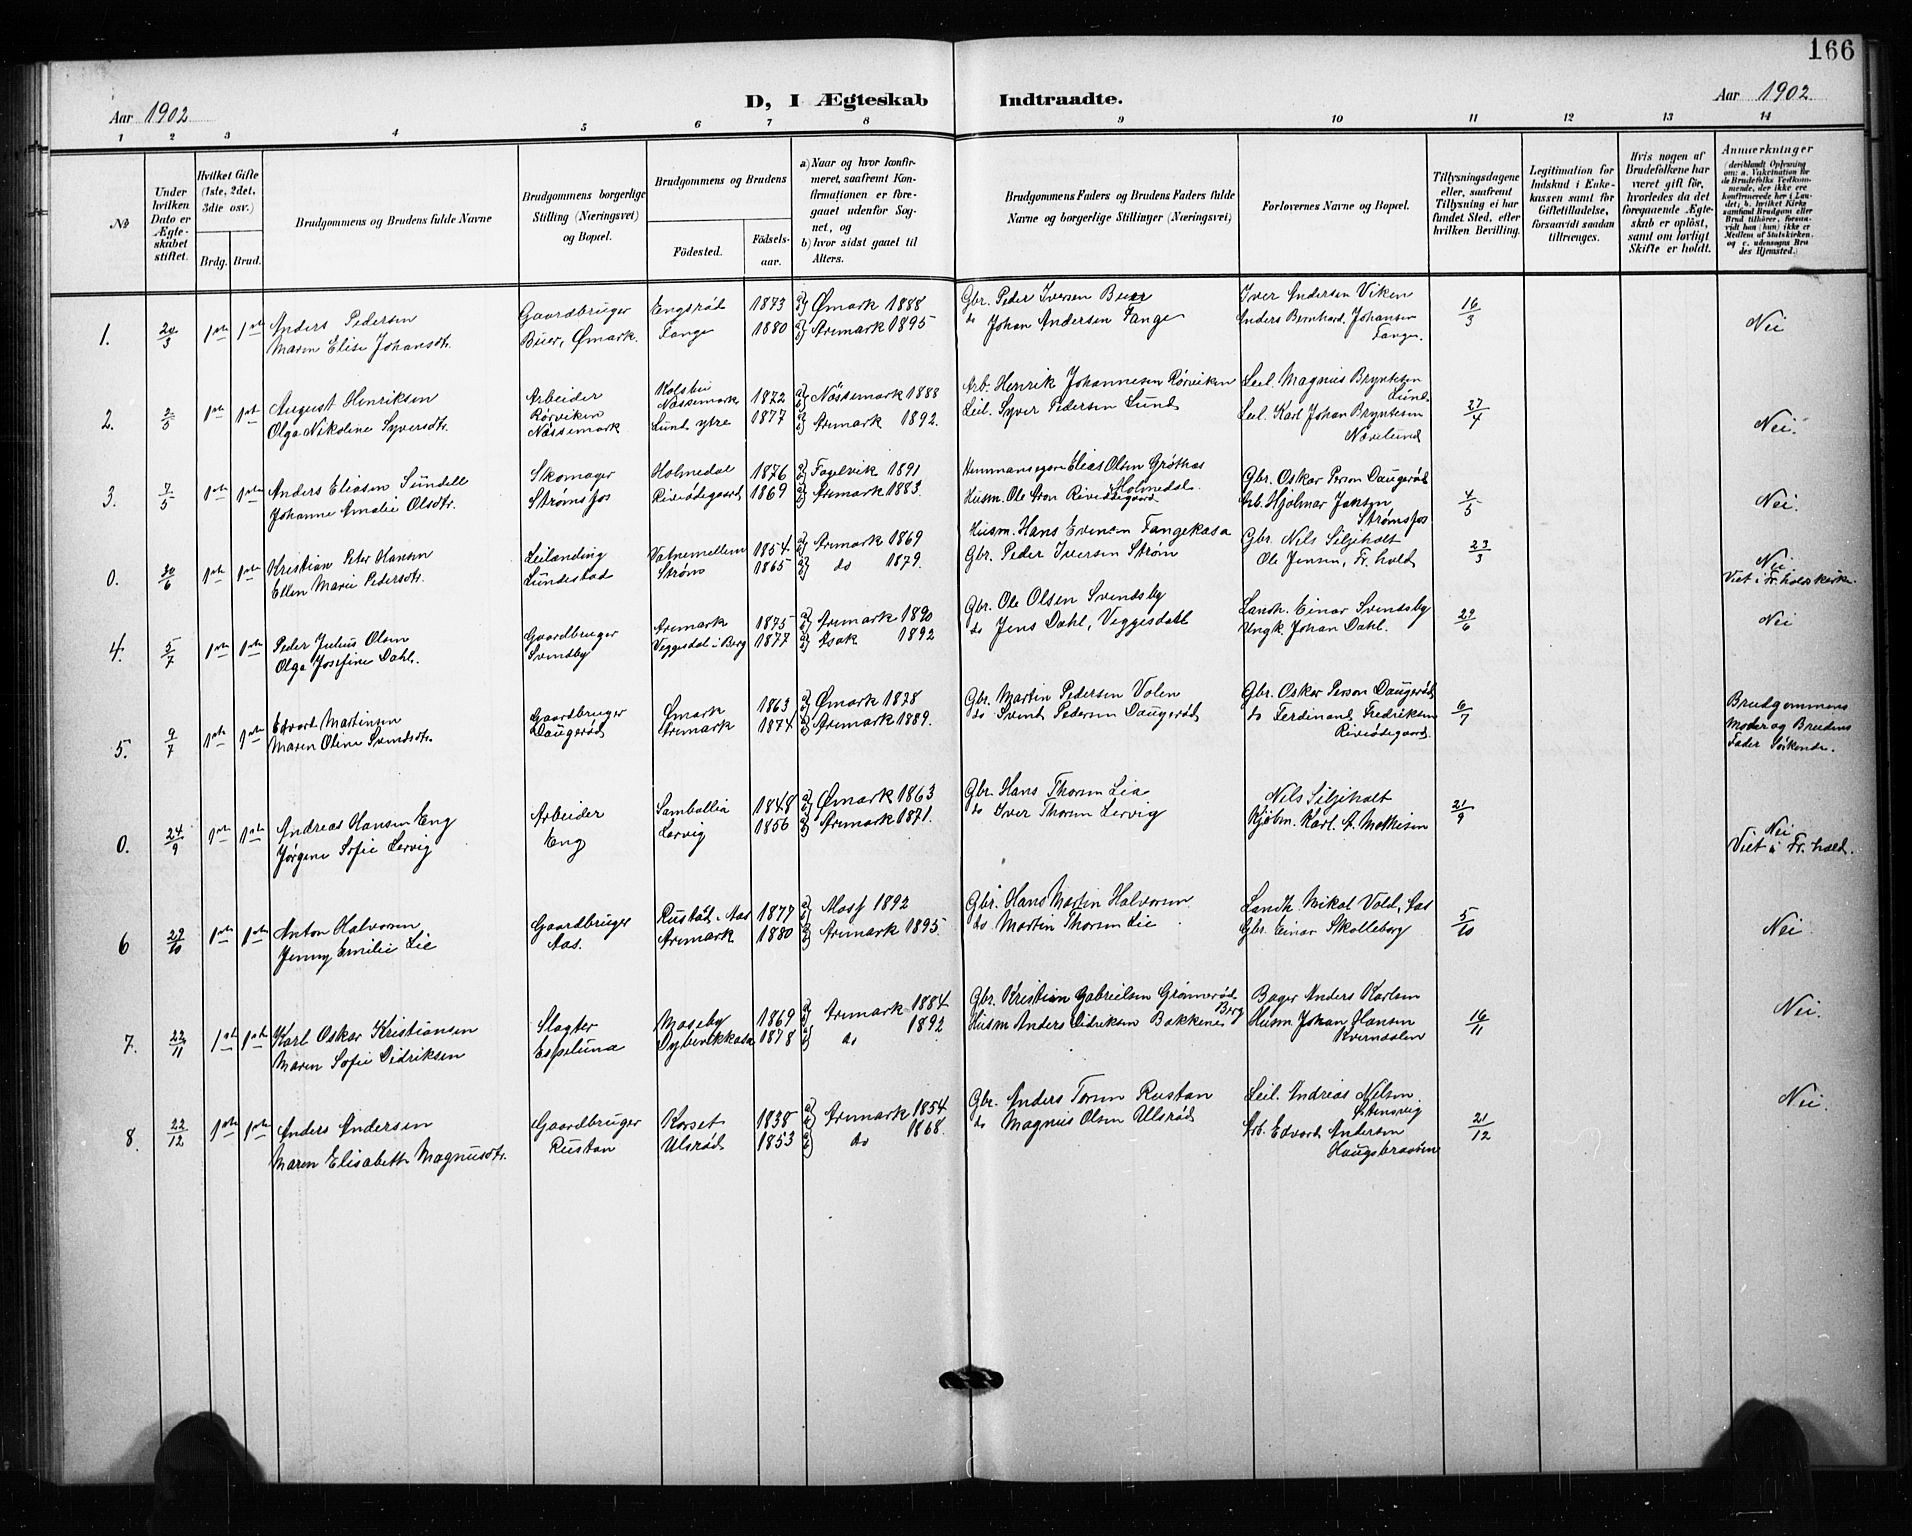 166
Aar 1902
D, I Ægteskab Indtraadte.
Aar 1902
1 2 3 4 5 6 7 8 9 10 11 12 13 14
№
Under hvilken Dato er Ægteskabet stiftet.
Hvilket Gifte (1ste, 2det, 3die osv.)
Brdg. Brud.
Brudgommens og Brudens fulde Navne
Brudgommens borgerlige Stilling (Næringsvei) og Bopæl.
Brudgommens og Brudens
Födested.
Födselsaar.
a) Naar og hvor konfirmeret, saafremt Konfirmationen er foregaaet udenfor Sognet, og
b) hvor sidst gaaet til Alters.
Brudgommens Faders og Brudens Faders fulde Navne og borgerlige Stillinger (Næringsvei)
Forlovernes Navne og Bopæl.
Tillysningsdagene eller, saafremt Tillysning ei har fundet Sted, efter hvilken Bevilling.
Legitimation for Indskud i Enkekassen samt for Giftetilladelse, forsaavidt saadan tiltrænges.
Hvis nogen af Brudefolkene har været gift för, hvorledes da det foregaaende Ægteskab er oplöst, samt om lovligt Skifte er holdt.
Anmærkninger
(deriblandt Oplysning om: a. Vakcination for de Brudefolks Vedkommende, der ikke ere konfirmerede her i Landet; b. hvilket Kirkesamfund Brudgom eller Brud tilhörer, forsaavidt han (hun) ikke er Medlem af Statskirken, og c. udensogns Brudes Hjemsted.)
1. 24/3 1ste 1ste Anders Pedersen Gaardbruger Engsröd 1873 a) Ømark 1888 Gbr. Peder Iversen Buer Iver Andersen Viken 16/3 Nei
Maren Elise Johansdtr. Buer, Ømark. Fange 1880 Aremark 1895 do Johan Andersen Fange Anders Bernhard Johansen
Fange.
2. 2/5 1ste 1ste August Henriksen Arbeider Nössemark 1872 a) Nössemark 1888 Arb. Henrik Johannesen Rörviken Leil. Magnus Bryntesen
Lund
Olga Nikoline Syversdtr. Rörviken Lund ytre 1877 Aremark 1892. Leil. Syver Pedersen Lund Leil. Karl Johan Bryntesen 27/4 Nei.
Nössemark Nærelund
3. 7/5 1ste 1ste Anders Eliasen Sundell Skomager Holmedal 1876 Fagelvik 1891 Hemmansegare Elias Olsen Gröthus Gbr. Oskar Person Daugeröd
Holmedal.
Johanne Amalie Olsdtr. Strömsfos Riveödegaard 1869 Aremark 1883. Husm. Ole Aron Riveödegaard Arb. Hjalmar Jansen 4/5 Nei.
Strömsfos
0. 30/6 1ste 1ste Kristian Peter Hansen Leilænding Vatnemellem 1854 Aremark 1869 Husm. Hans Evensen Fangekasa Gbr. Nels Siljeholt 23/3 Nei
Ellen Marie Pedersdtr. Lundestad Ström 1865 do 1879. Gbr. Peder Iversen Ström Ole Jensen, Fr. hald Viet i Fr. halds kirke.
4. 5/7 1ste 1ste Peder Julius Olsen Gaardbruger Aremark 1875 Aremark 1890 Gbr. Ole Olsen Svendsby Landh. Einar Svendsby 29/6 Nei
Olga Josefine Dahl. Svendsby Veggesdal i Berg 1877 Asak 1892 do Jens Dahl, Veggesdahl Ungk. Johan Dahl.
5. 9/7 1ste 1ste Edvard Martinsen Gaardbruger Ømark 1863 Ømark 1878 Gbr. Martin Pedersen Volen Gbr. Oskar Person Daugeröd 6/7 Brudgommens
Maren Oline Svendsdtr. Daugeröd Aremark 1874 Aremark 1889. do Svend Pedersen Daugeröd do Ferdinand Fredriksen Moder og Brudens
Riveödegaard. Fader Söskende.
0. 24/9 1ste 1ste Andreas Hansen Eng Arbeider Samballia 1848 Ømark 1863 Gbr. Hans Thorsen Lia Nels Siljeholt 21/9 Nei
Jörgine Sofie Lervig Eng Lervig 1856 Aremark 1871. do Iver Thorsen Lervig Kjöbm. Karl A. Mathisen Viet i Fr. hald.
6 29/10 1ste 1ste Anton Halvorsen Gaardbruger Rustad i Aas 1877 Moss 1892 Gbr. Hans Martin Halvorsen Landh. Nikol Vold, Aas 5/10 Nei.
Jenny Emilie Lie Aas. Aremark 1880 Aremark 1895. do Martin Thorsen Lie Gbr. Einar Skolleborg
7. 22/11 1ste 1ste Karl Oskar Kristiansen Slagter Moseby 1869 Aremark 1884 Gbr. Kristian Gabrielsen Grönneröd Bager Anders Karlsen 16/11 Nei.
Berg
Maren Sofie Didriksen Espelund Dybevikkasa 1878 do 1892 Husm. Anders Didriksen Bakkene Husm. Johan Hansen
Kverndalen
8. 22/12 1ste 1ste Anders Andersen Gaardbruger Korset 1838 Aremark 1854. Gbr. Anders Torsen Rustan Leil. Andreas Nilsen. 21/12 Nei.
Stensvig
Maren Elisabeth Magnusdtr. Rustan Ulsröd 1853 do 1868. do Magnus Olsen Ulsröd Arb. Edvard Andersen
Haugsbraaten